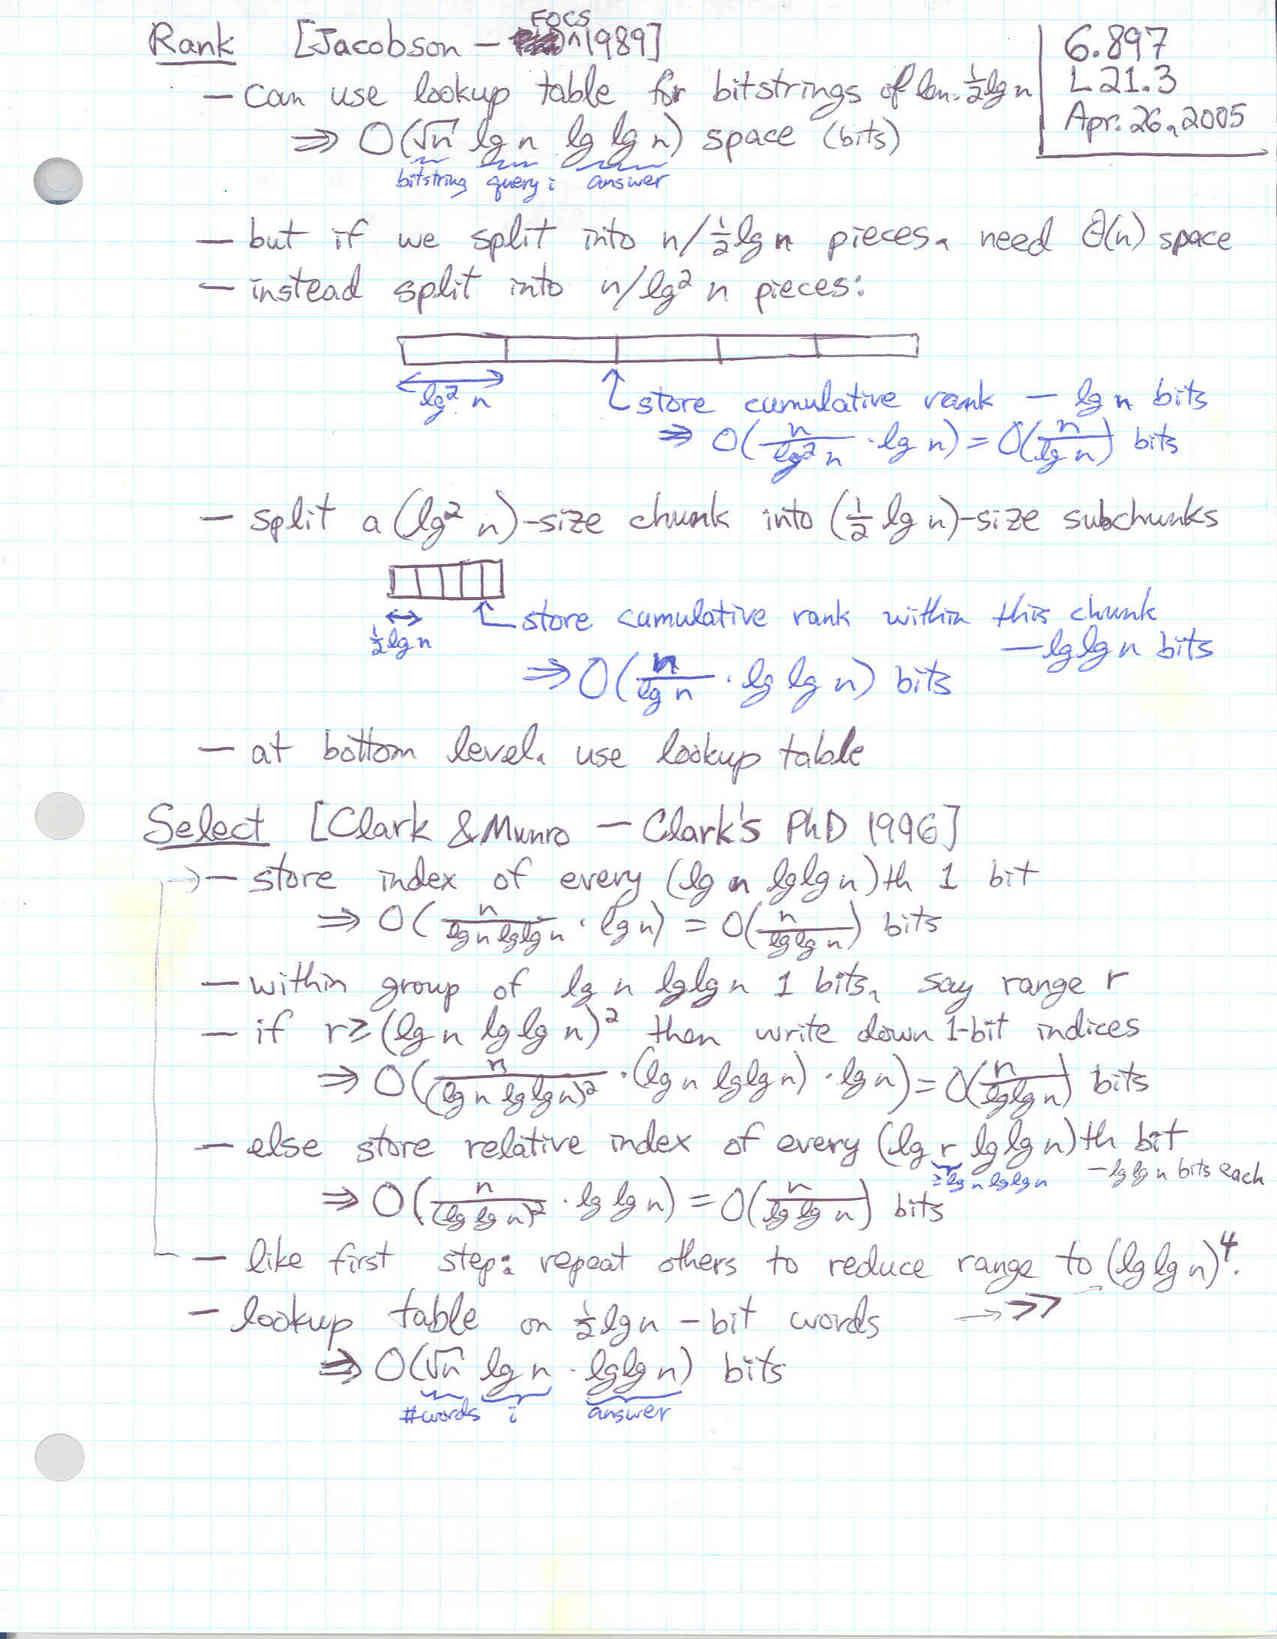 Rank [Jacobson — FOCS 1989]
6.897
L21.3
Apr. 26, 2005
— can use lookup table for bitstrings of len. ½lg n
⇒ O(√n lg n lg lg n) space (bits)
bitstring query i answer
— but if we split into n/½lg n pieces, need Θ(n) space
— instead split into n/lg² n pieces:
lg² n
store cumulative rank — lg n bits
⇒ O(n/lg² n · lg n) = O(n/lg n) bits
— split a (lg² n)-size chunk into (½ lg n)-size subchunks
store cumulative rank within this chunk
½lg n
— lg lg n bits
⇒ O(n/lg n · lg lg n) bits
— at bottom level, use lookup table
Select [Clark & Munro — Clark's PhD 1996]
→ — store index of every (lg n lglg n)th 1 bit
⇒ O(n/lg n lglg n · lg n) = O(n/lglg n) bits
— within group of lg n lglg n 1 bits, say range r
— if r ≥ (lg n lg lg n)² then write down 1-bit indices
⇒ O(n/(lg n lglg n)² · (lg n lglg n) · lg n) = O(n/lglg n) bits
— else store relative index of every (lg r lg lg n)th bit
≥lg n lglg n
— lg lg n bits each
⇒ O(n/(lg lg n)² · lg lg n) = O(n/lg lg n) bits
— like first step: repeat others to reduce range to (lg lg n)⁴.
— lookup table on ½lgn-bit words →>>
⇒ O(√n lg n · lglg n) bits
#words i answer